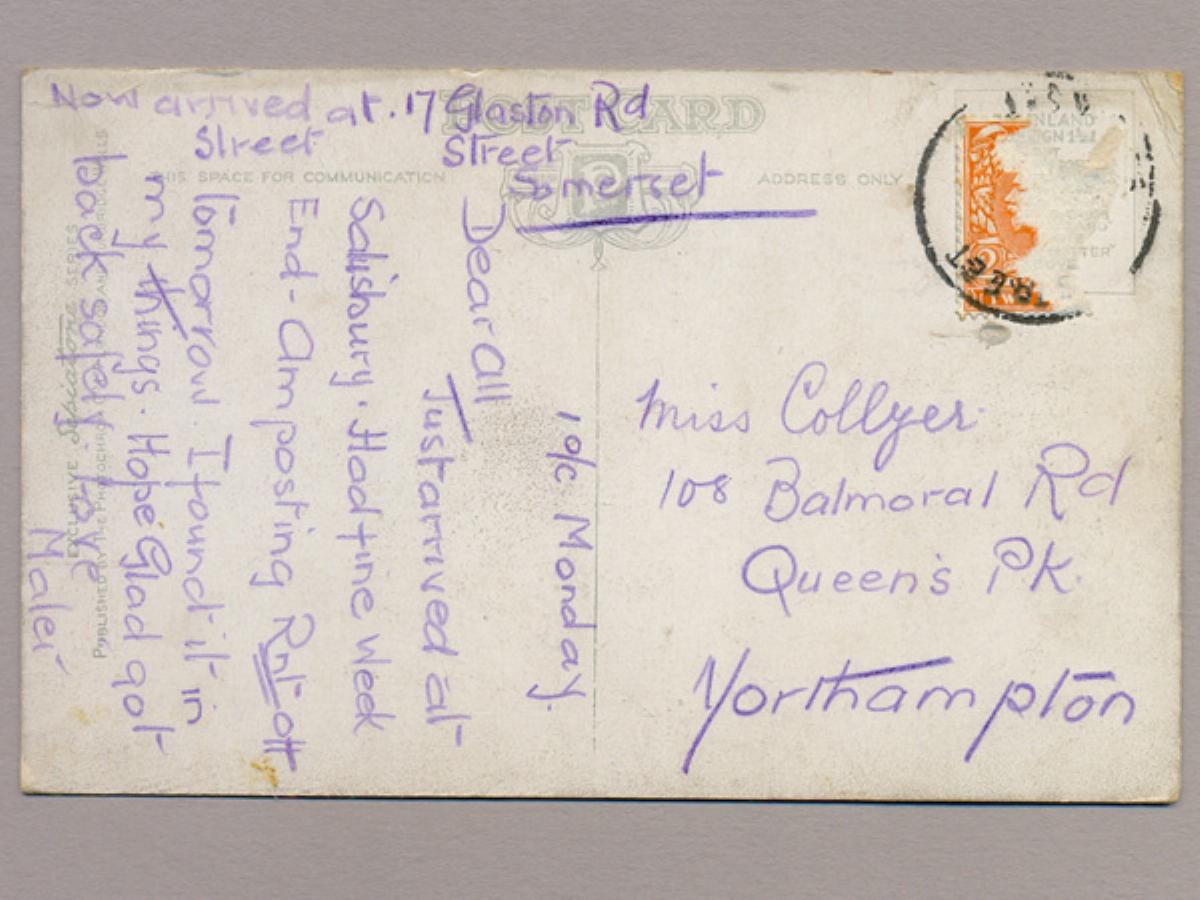 Now arrived at. 17 Glaston Rd
Street Street
Somerset
POST CARD
THIS SPACE FOR COMMUNICATION
ADDRESS ONLY
INLAND
STREET
10/c Monday.
Dear All
Just arrived at
Salisbury. Had fine Week
End - Am posting Rnt off
Tomorrow. I found it in
my things. Hope Glad got
back safely. Love
Miss Collyer.
108 Balmoral Rd
Queen's Pk.
Northampton
EXCLUSIVE SERIES
PUBLISHED BY THE PHOTOCHROM